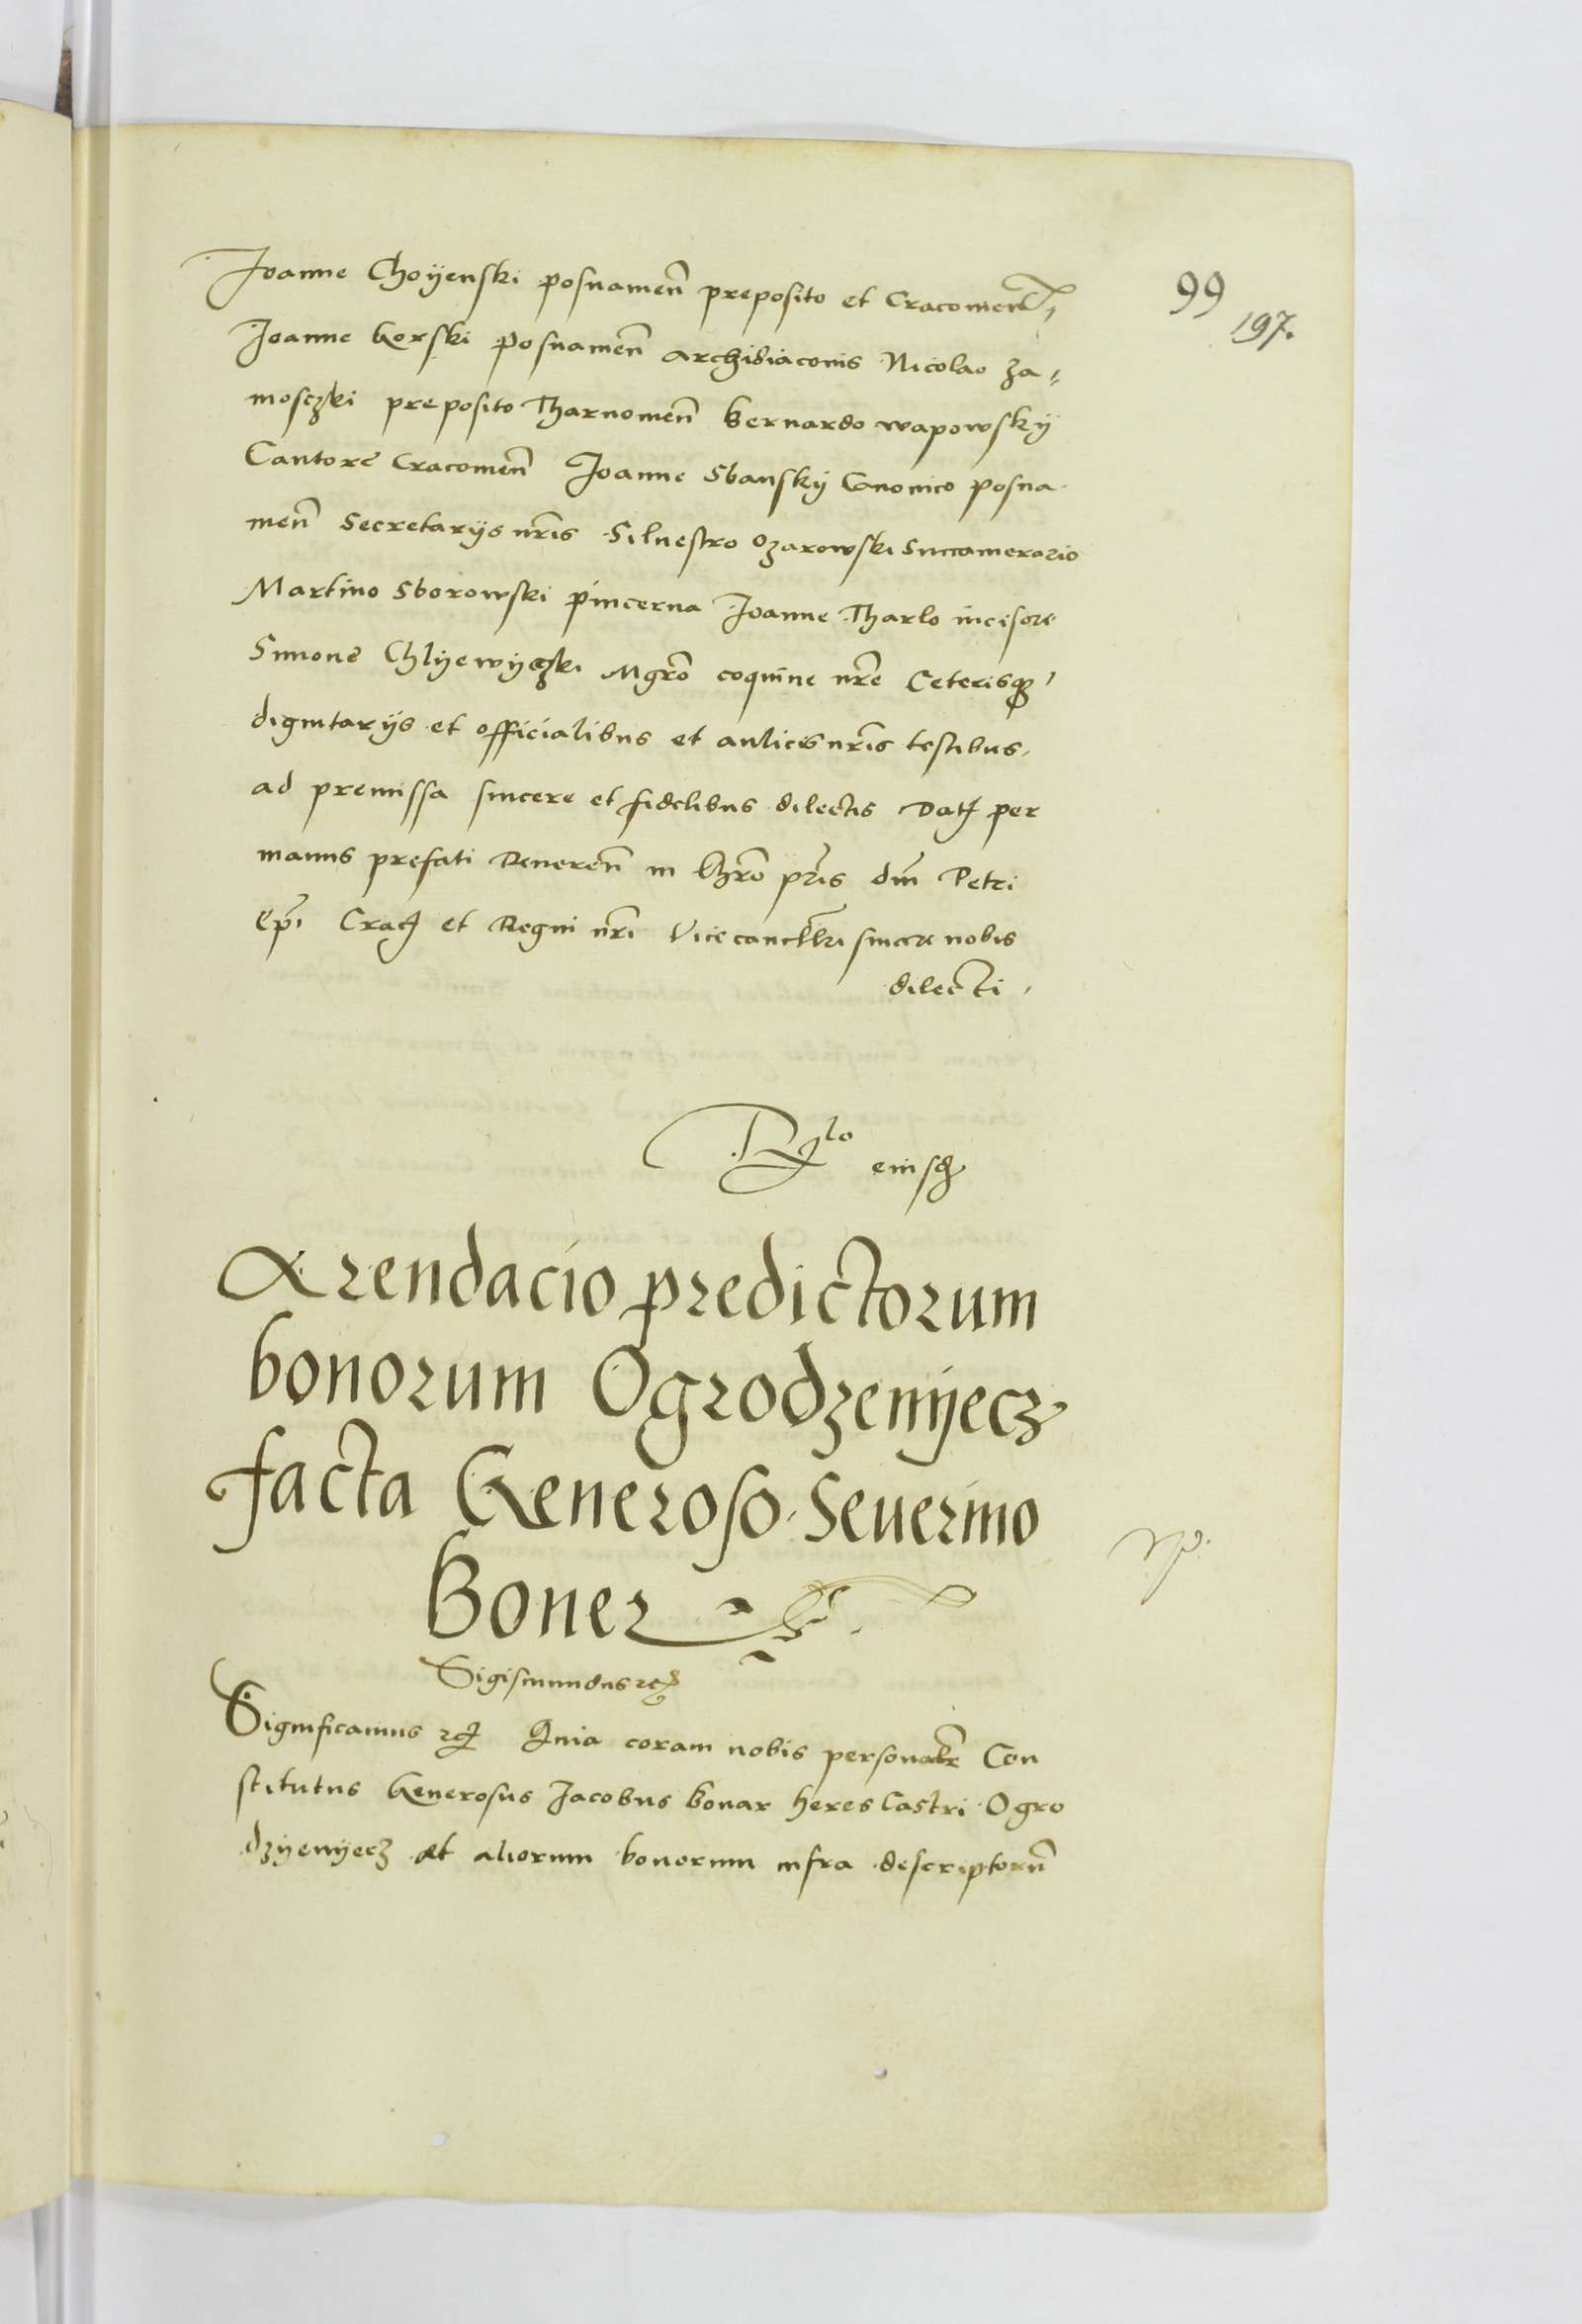 99
197.
Joanne Choyenski posnamen̄ preposito et Cracomen̄
Joanne Gorski posnamen̄ archidiaconis Nicolao Za-
mosczki preposito Tharnomen̄ Bernardo wapowsky
Cantore Cracomen̄ Joanne Sbansky Canonico posna
men̄ Secretarÿs nr̄is Siluestro Ozarowski Succamerario
Martino Sborowski pincerna Joanne Tharlo incisore
Simone Chlyewyczki Mgrō coquine nr̄e Ceterisqꝫ
dignitarÿs et officialibus et aulicis nr̄is testibus
ad premissa sincere et fidelibus dilectis Datꝭ per
manus prefati Reueren̄ in Chr̄o pr̄is dn̄i Petri
Ep̄i Cracꝭ et Regni nr̄i Vicecancell̄ri sincere nobis
dilecti
Rꝭlo eiusdꝭ
Arendacio predictorum
bonorum Ogrodzenyecz
facta Generoso Seuerino
Boner
Sigismundus ꝛcꝭ
Significamus ꝛcꝭ Quia coram nobis personalr̄ Con
stitutus Generosus Jacobus bonar heres Castri Ogro
dzyenyecz et aliorum bonorum infra descriptorum̄